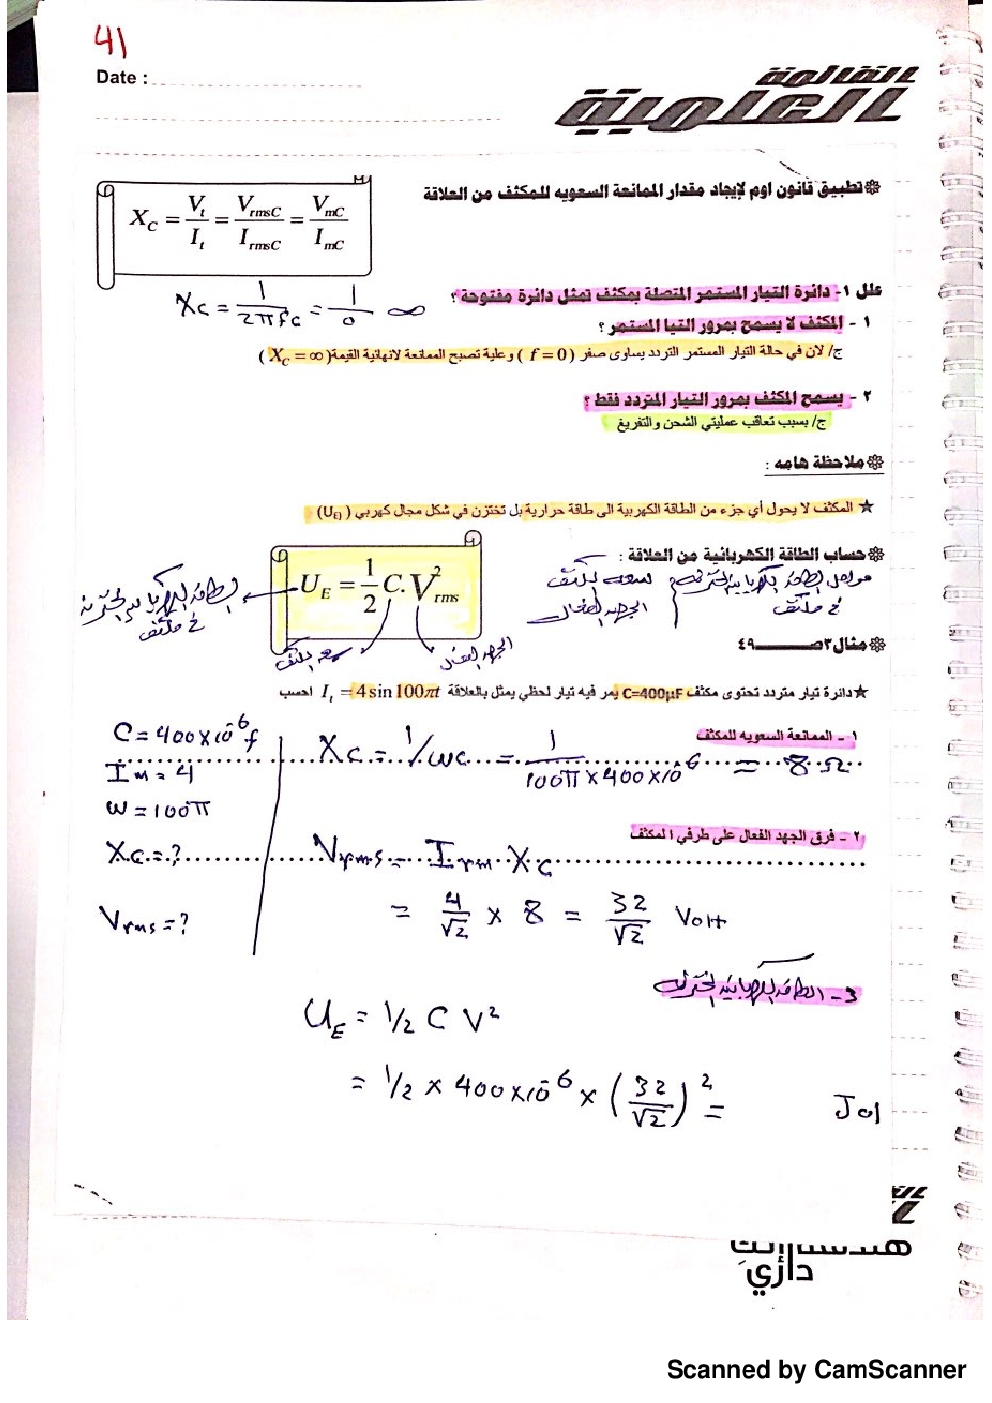 41
Date :
القائمة
العلمية
تطبيق قانون اوم لإيجاد مقدار الممانعة السعويه للمكثف من العلاقة
X_C = V_t / I_t = V_rmsC / I_rmsC = V_mC / I_mC
علل ١- دائرة التيار المستمر المتصلة بمكثف تمثل دائرة مفتوحة ؟
X_C = 1 / 2πfc = 1 / 0 ∞
١ - المكثف لا يسمح بمرور التيا المستمر ؟
ج/ لان في حالة التيار المستمر التردد يساوى صفر ( f = 0 ) وعلية تصبح الممانعة لانهائية القيمة( X_C = ∞ )
٢ - يسمح المكثف بمرور التيار المتردد فقط ؟
ج/ بسبب تعاقب عمليتي الشحن والتفريغ
ملاحظة هامه :
★ المكثف لا يحول أي جزء من الطاقة الكهربية الى طاقة حرارية بل تختزن في شكل مجال كهربي ( U_E)
حساب الطاقة الكهربائية من العلاقة :
U_E = 1/2 C.V²_rms
الطاقة الكهربائية المختزنة
في مكثف
سعه المكثف
الجهد الفعال
مثال٣صـــــ٤٩
★دائرة تيار متردد تحتوى مكثف C=400μF يمر فيه تيار لحظي يمثل بالعلاقة I_t = 4 sin 100πt احسب
١ - الممانعة السعويه للمكثف
C = 400×10⁻⁶ f
X_C = 1/wc = 1 / 100π × 400×10⁻⁶ = 8 Ω
I_m = 4
w = 100π
٢ - فرق الجهد الفعال على طرفي المكثف
X_C = ?
V_rms = I_rm . X_C
V_rms = ?
= 4/√2 × 8 = 32/√2 Volt
3 - الطاقة الكهربائية المختزنة
U_E = 1/2 C V²
= 1/2 × 400×10⁻⁶ × (32/√2)² = Jol
داري
Scanned by CamScanner